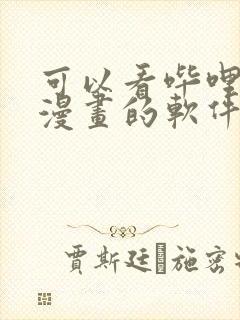 可以看哔哩
漫畫的軟件
賈斯廷·施密特